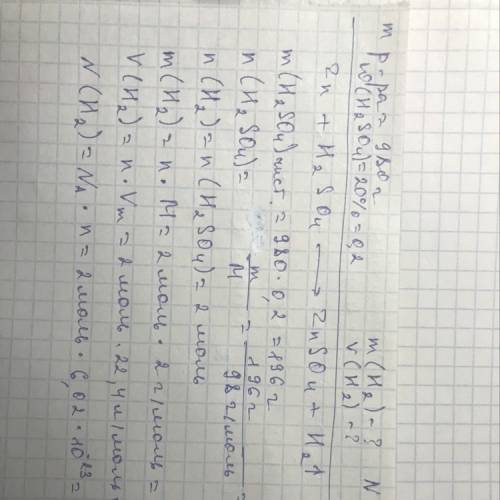 m р-ра = 980г        m(H₂) - ?   N
ω(H₂SO₄) = 20% = 0,2        V(H₂) - ?
Zn + H₂SO₄ ⟶ ZnSO₄ + H₂↑
m(H₂SO₄) чист. = 980 · 0,2 = 196г
n(H₂SO₄) = m/M = 196г/98г/моль =
n(H₂) = n(H₂SO₄) = 2 моль
m(H₂) = n · M = 2 моль · 2г/моль =
V(H₂) = n · Vm = 2 моль · 22,4л/моль
N(H₂) = NA · n = 2 моль · 6,02 · 10²³ =